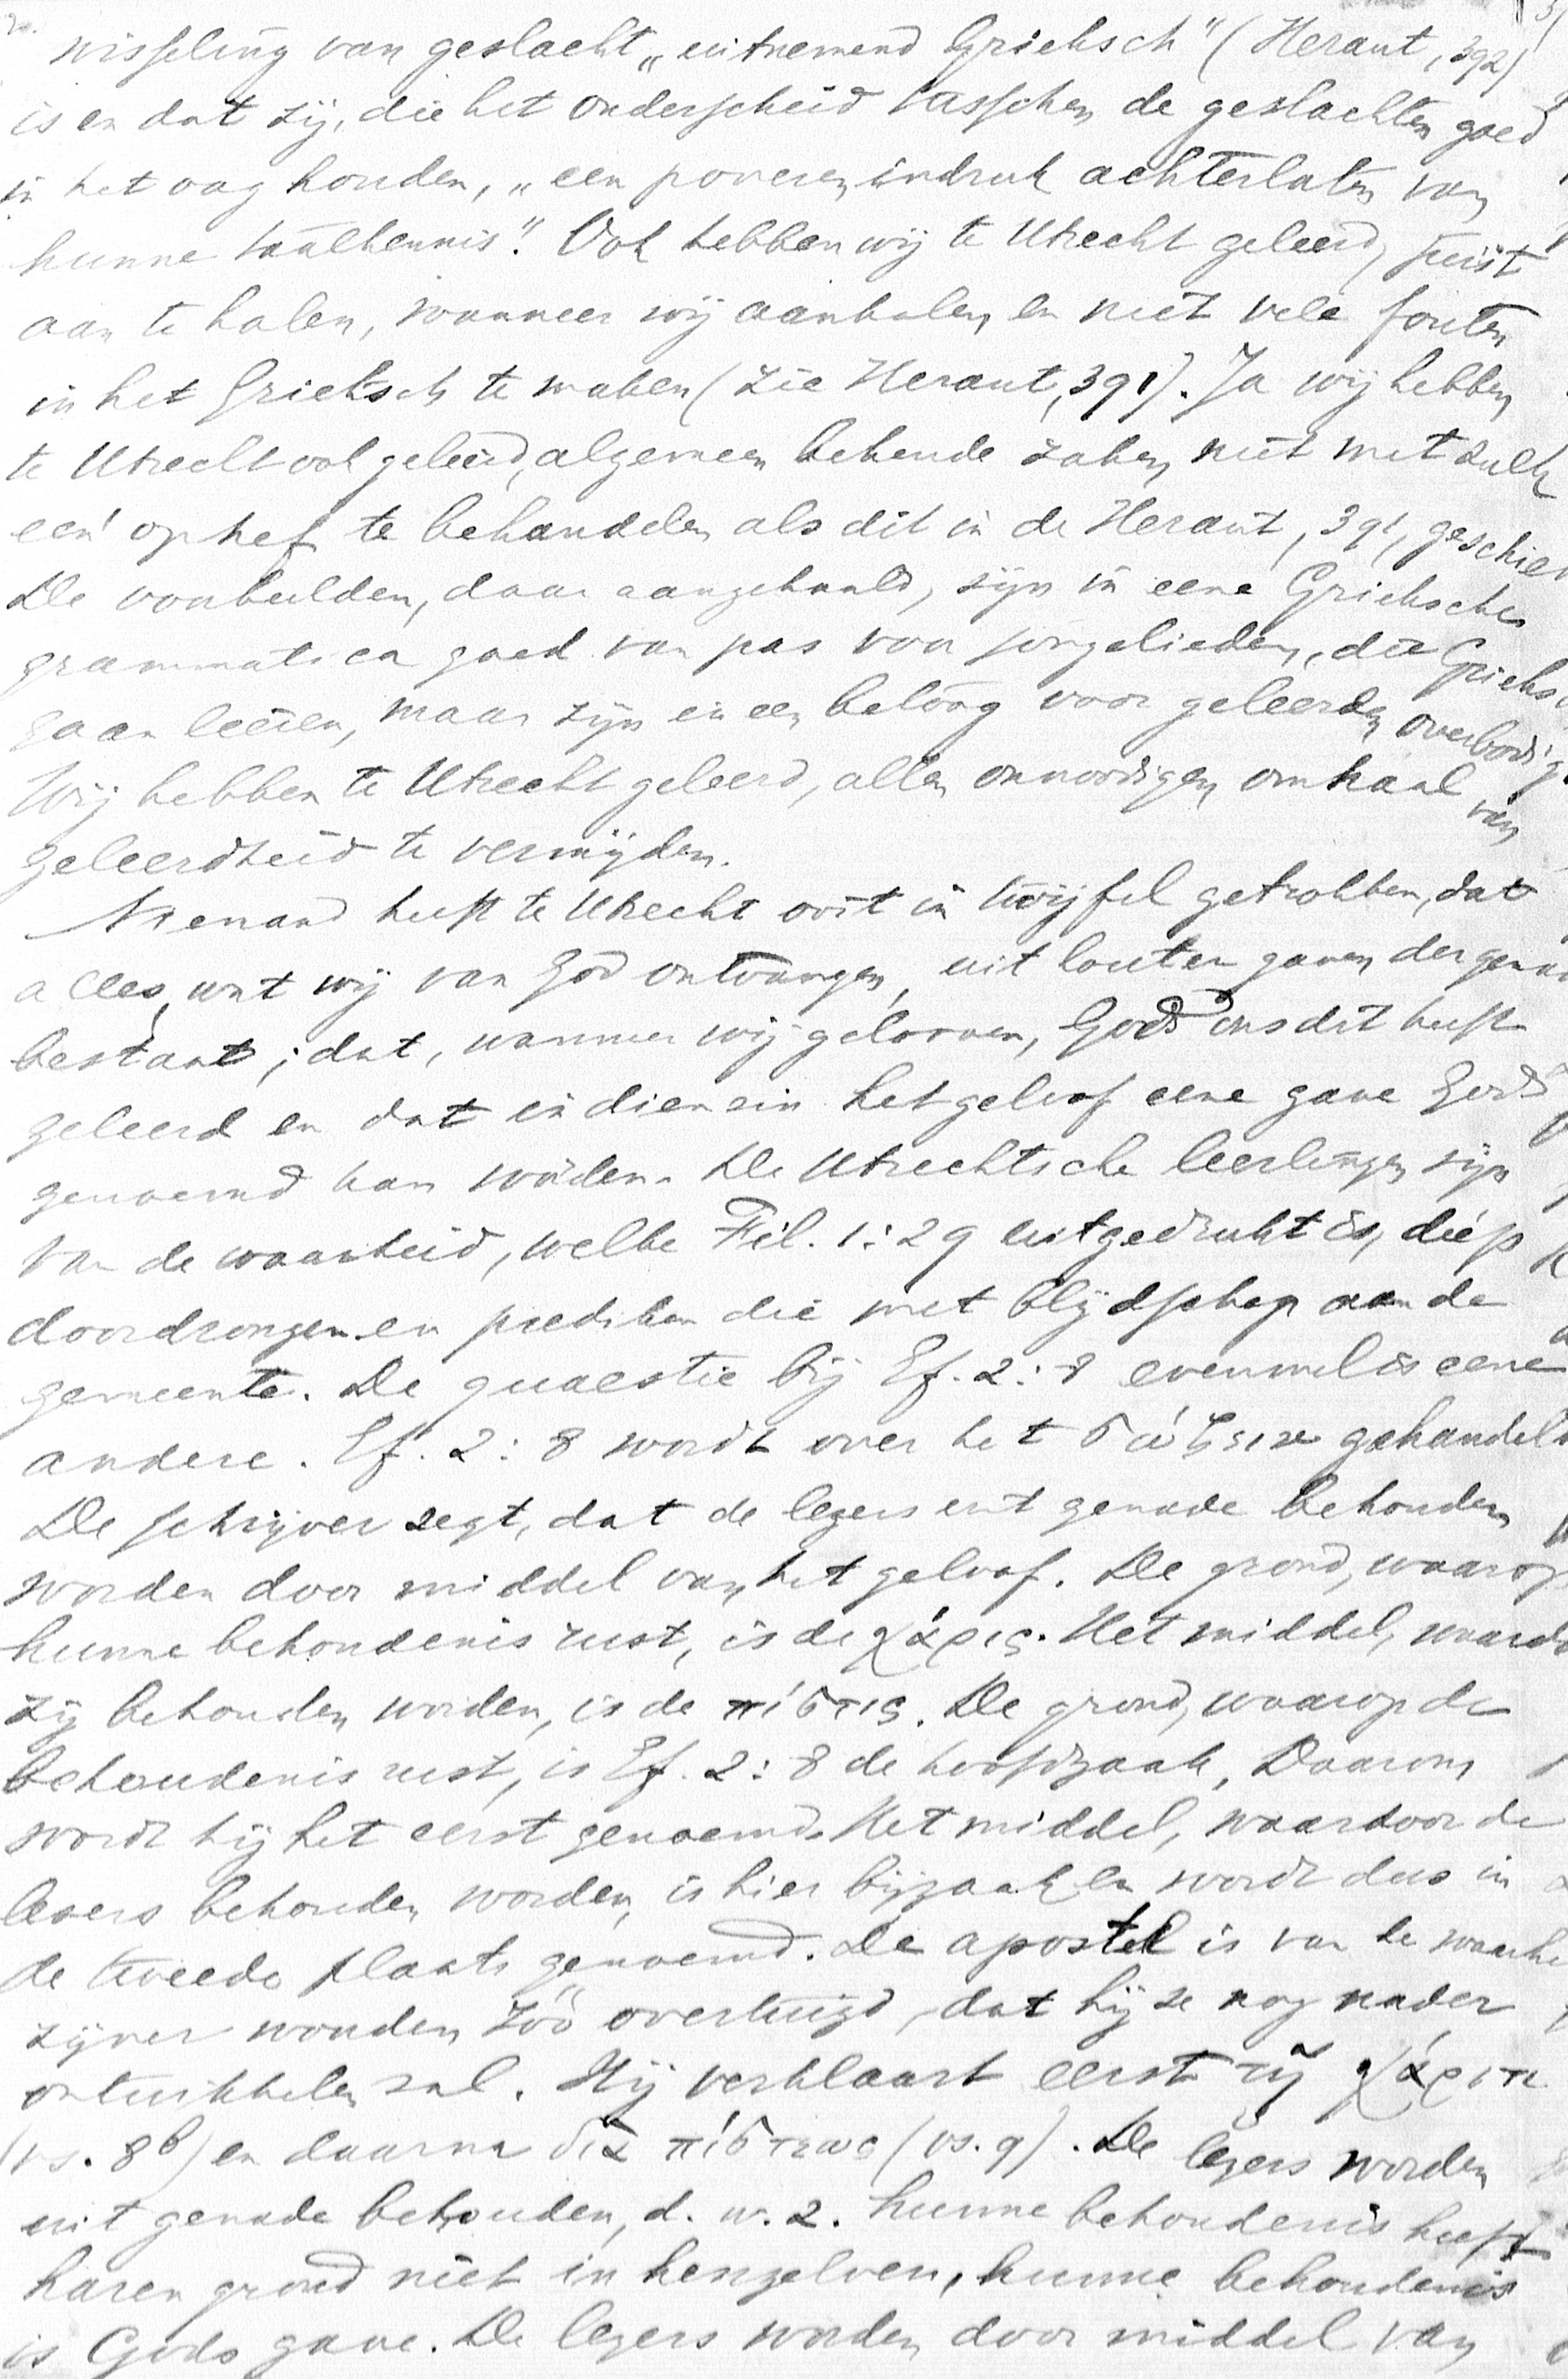 2.
wisseling van geslacht „uitnemend Grieksch" (Heraut, 392)
is en dat zij, die het onderscheid tusschen de geslachten goed
in het oog houden, „een poveren indruk achterlaten van
hunne taalkennis". Ook hebben wij te Utrecht geleerd, juist
aan te halen, wanneer wij aanhalen en niet vele fouten
in het Grieksch te maken (zie Heraut, 391). Ja wij hebben
te Utrecht ook geleerd, algemeen bekende zaken niet met zulk
een' ophef te behandelen als dit in de Heraut, 391, geschied
De voorbeelden, daar aangehaald, zijn in eene Grieksche
grammatica goed van pas voor jongelieden, die Grieks
gaan leeren, maar zijn in een betoog voor geleerden overbodig
Wij hebben te Utrecht geleerd, allen onnoodigen omhaal van
geleerdheid te vermijden.
Niemand heeft te Utrecht ooit in twijfel getrokken, dat
alles, wat wij van God ontvangen, uit louter gaven der gena
bestaat; dat, wanneer wij gelooven, God ons dit heeft
geleerd en dat in dien zin het geloof eene gave Gods
genoemd kan worden. De Utrechtsche leerlingen zijn
van de waarheid, welke Fil. 1:29 uitgedrukt is, diep
doordrongen en prediken die met blijdschap aan de
gemeente. De quaestie bij Ef. 2:8 evenwel is eene
andere. Ef. 2:8 wordt over het σώζειν gehandeld
De schrijver zegt, dat de lezers uit genade behouden
worden door middel van het geloof. De grond, waarop
hunne behoudenis rust, is de χάρις. Het middel, waardo
zij behouden worden, is de πίστις. De grond, waarop de
behoudenis rust, is Ef. 2:8 de hoofdzaak, Daarom
wordt hij het eerst genoemd. Het middel, waardoor de
lezers behouden worden, is hier bijzaak en wordt dus in
de tweede plaats genoemd. De apostel is van de waarhe
zijner woorden zóó overtuigd, dat hij ze nog nader
ontwikkelen zal. Hij verklaart eerst τῇ χάριτι
(vs. 8b) en daarna διὰ πίστεως (vs. 9). De lezers worden
uit genade behouden, d. w. z. hunne behoudenis heeft
haren grond niet in henzelven, hunne behoudenis
is Gods gave. De lezers worden door middel van